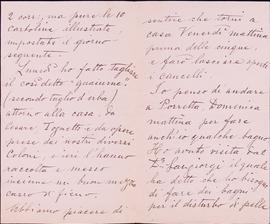 2 corr, ma pure le 10
cartoline illustrate
impostate il giorno
seguente.
Lunedì ho fatto tagliare
il così detto "guaiume"
(secondo taglio d'erba)
attorno alla casa, da
Cesare Tognetti e da opere
prese dai nostri diversi
coloni, e ieri l'hanno
raccolta e messo
insieme un buon mezzo
carro di fieno.
Abbiamo piacere di
sentire che torni a
casa Venerdì mattina
prima delle cinque
e farò lasciare aperti
i cancelli.
Io penso di andare
a Porretta Domenica
mattina per fare
anch'io qualche bagno.
Ho avuto visita dal
Dr. Sangiorgi il quale
ha detto che ho bisogno
di fare dei bagni
per il disturbo di pelle